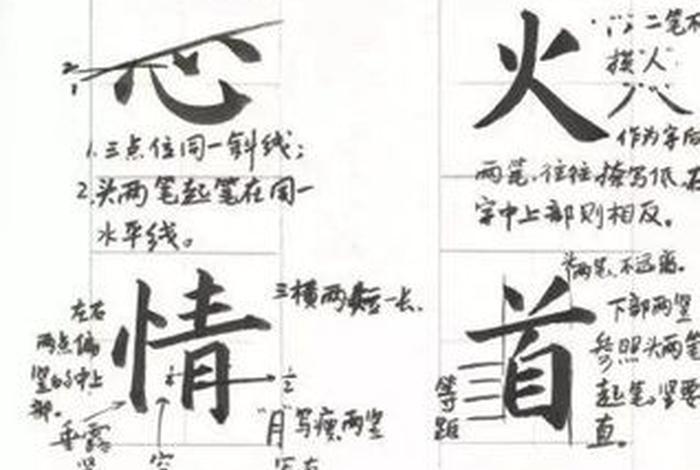 心
2
1
1.三点位同一斜线;
2.头两笔起笔在同一
水平线。
火
二笔不
摸"人"
作为字
两笔,往往捺写低,在
字中上部则相反。
情
三横两短一长.
左右
两点偏
竖的中上
部。
垂露
1/2
"月"写瘦,两竖
首
头两笔,不远离。
下部两竖
参照头两笔
起笔,竖要
直。
等
距